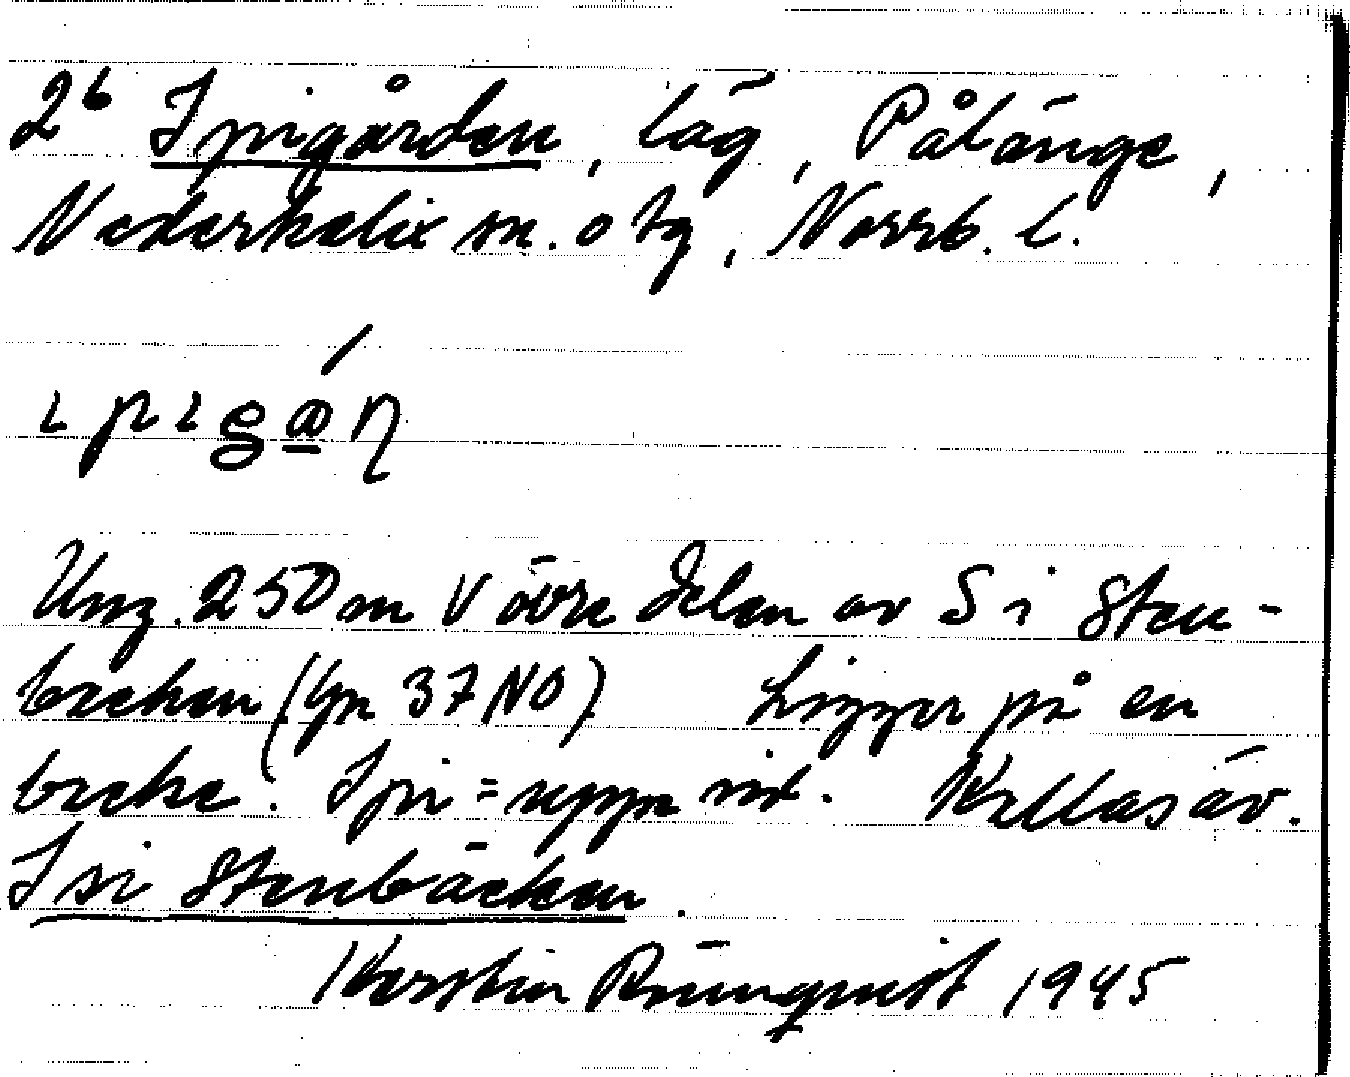 2b Ipigården, läg, Pålänge,
Nederkalix sn. o tg, Norrb. l.
ɩpɩgɷ́ŋ
Ung. 250 m V övre delen av S i Sten-
backen (Gn 37 NO) Ligger på en
backe. Ipi = uppe vid. Källasäv.
I si Stenbäcken.
Kerstin Rönnquist 1945